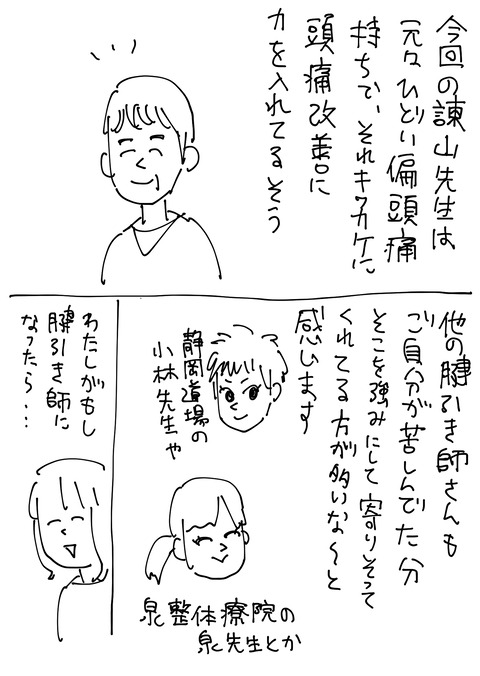 今回の諌山先生は
元々ひどい偏頭痛
持ちで、それキッカケに
頭痛改善に
力を入れてるそう
他の腱引き師さんも
ご自分が苦しんでた分
そこを強みにして寄りそって
くれてる方が多いな〜と
感じます
静岡道場の
小林先生や
泉整体療院の
泉先生とか
わたしがもし
腱引き師に
なったら…